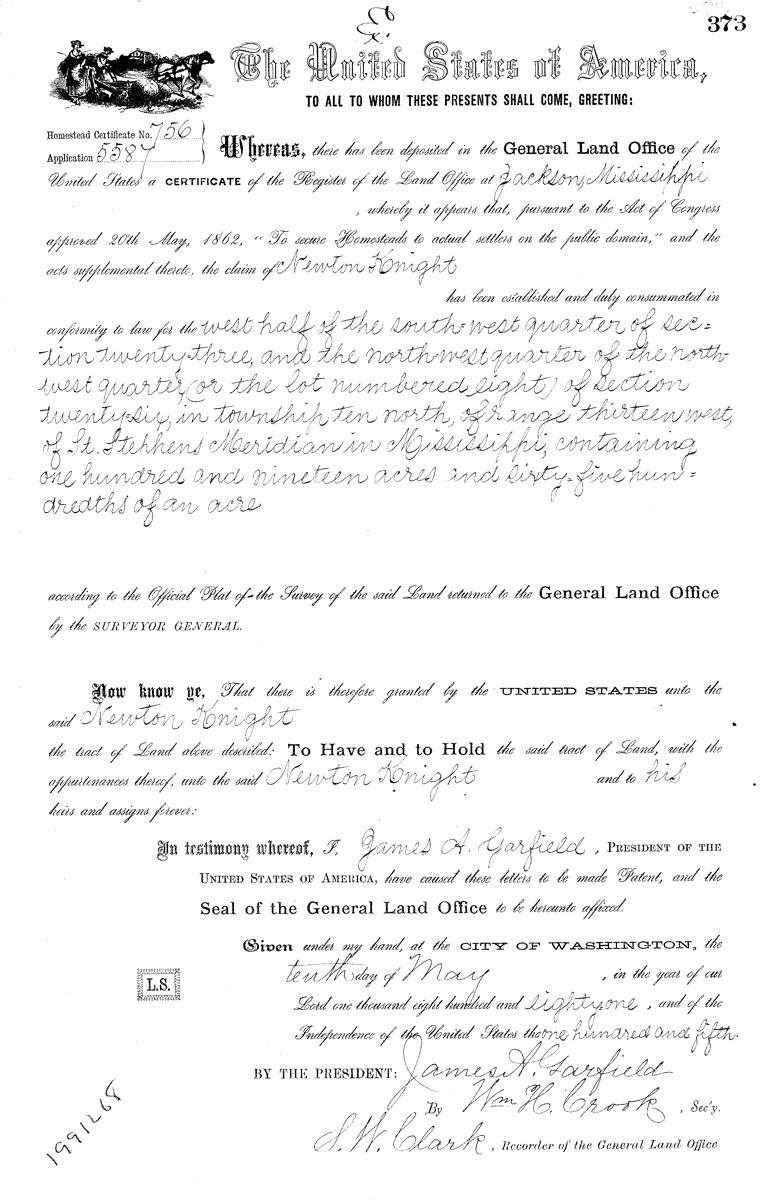 373
The United States of America,
TO ALL TO WHOM THESE PRESENTS SHALL COME, GREETING:
Homestead Certificate No. 756
Application 5587
Whereas, there has been deposited in the General Land Office of the
United States a CERTIFICATE of the Register of the Land Office at Jackson, Mississippi
, whereby it appears that, pursuant to the Act of Congress
approved 20th May, 1862, "To secure Homesteads to actual settlers on the public domain," and the
acts supplemental thereto, the claim of Newton Knight
has been established and duly consummated in
conformity to law for the west half of the south-west quarter of sec=
tion twenty-three, and the north-west quarter of the north-
west quarter (or the lot numbered eight) of section
twenty-six, in township ten north, of range thirteen west,
of St. Stephens Meridian in Mississippi, containing
one hundred and nineteen acres and sixty-five hun=
dredths of an acre
according to the Official Plat of the Survey of the said Land returned to the General Land Office
by the SURVEYOR GENERAL.
Now know ye, That there is therefore granted by the UNITED STATES unto the
said Newton Knight
the tract of Land above described: To Have and to Hold the said tract of Land, with the
appurtenances thereof, unto the said Newton Knight and to his
heirs and assigns forever:
In testimony whereof, I, James A. Garfield, PRESIDENT OF THE
UNITED STATES OF AMERICA, have caused these letters to be made Patent, and the
Seal of the General Land Office to be hereunto affixed.
Given under my hand, at the CITY OF WASHINGTON, the
tenth day of May, in the year of our
L.S.
Lord one thousand eight hundred and eighty-one, and of the
Independence of the United States the one hundred and fifth.
BY THE PRESIDENT: James A. Garfield
By Wm H. Crook, Sec'y.
S. W. Clark, Recorder of the General Land Office
1991268